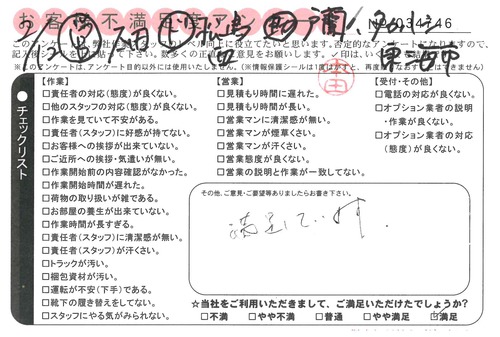 お客様不満足度ア
No.034746
このアンケートは、弊社作業スタッフのレベル向上に役立てたいと思います。否定的なアンケートになりますので、
※本アンケートは、アンケート目的以外には使用いたしません。
チェックリスト
【作業】
□責任者の対応(態度)が良くない。
□他のスタッフの対応(態度)が良くない。
□作業を見ていて不安がある。
□責任者(スタッフ)に好感が持てない。
□お客様への挨拶が出来ていない。
□ご近所への挨拶・気遣いが無い。
□作業開始前の内容確認がなかった。
□作業開始時間が遅れた。
□荷物の取り扱いが雑である。
□お部屋の養生が出来ていない。
□作業時間が長すぎる。
□責任者(スタッフ)に清潔感が無い。
□責任者(スタッフ)が汗くさい。
□トラックが汚い。
□梱包資材が汚い。
□運転が不安(下手)である。
□靴下の履き替えをしてない。
□スタッフにやる気がみられない。
【営業】
□見積もり時間に遅れた。
□見積もり時間が長い。
□営業マンに清潔感が無い。
□営業マンが煙草くさい。
□営業マンが汗くさい。
□営業態度が良くない。
□営業の説明と作業が一致してない。
【受付・その他】
□電話の対応が良くない。
□オプション業者の説明
・作業が良くない。
□オプション業者の対応
(態度)が良くない。
その他、ご意見・ご要望等ありましたらお書き下さい。
満足しています.
☆当社をご利用いただきまして、ご満足いただけてしょうか?
□不満 □やや不満 □普通 □やや満足 ☑満足